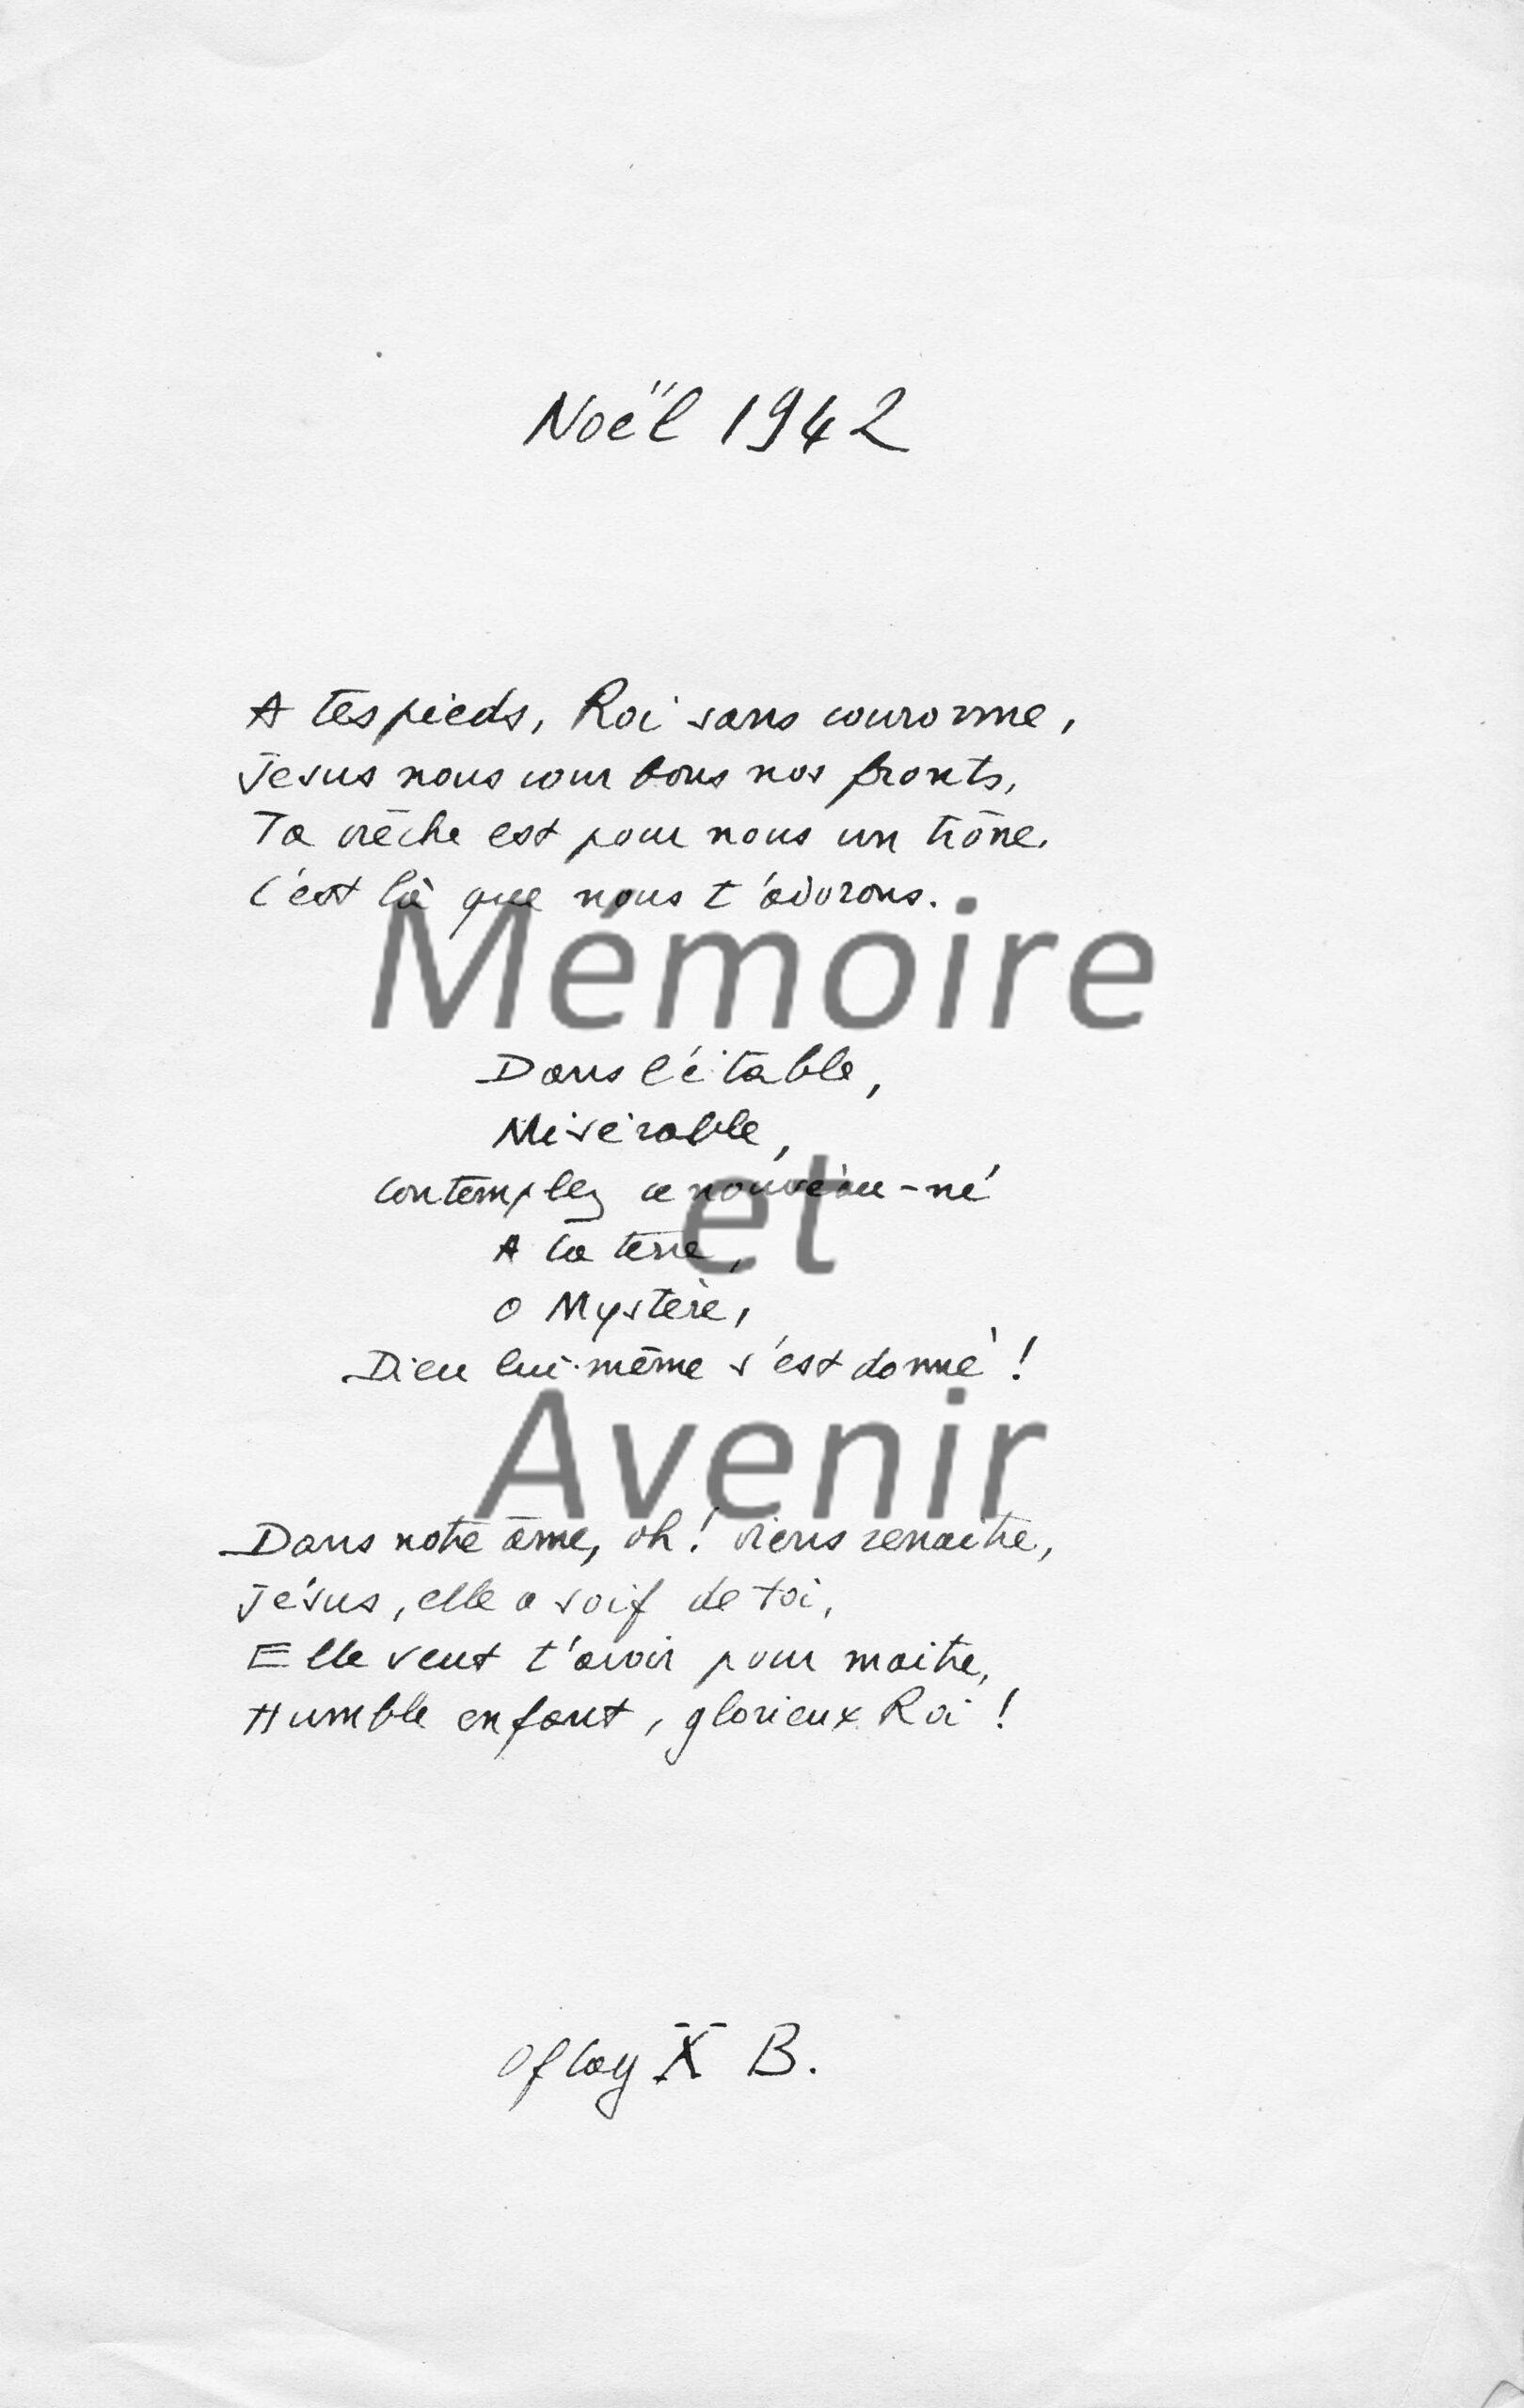 Noël 1942
A tes pieds, Roi sans couronne,
Jesus nous courbons nos fronts,
Ta crêche est pour nous un trône.
C'est là que nous t'adorons.
Mémoire
Dans l'étable,
Misérable,
Contemplez ce nouveau-né
et
A la terre,
O Mystère,
Dieu lui-même s'est donné !
Avenir
Dans notre âme, oh! viens renaitre,
Jésus, elle a soif de toi,
Elle veut t'avoir pour maitre,
Humble enfant, glorieux Roi !
Oflag X B.